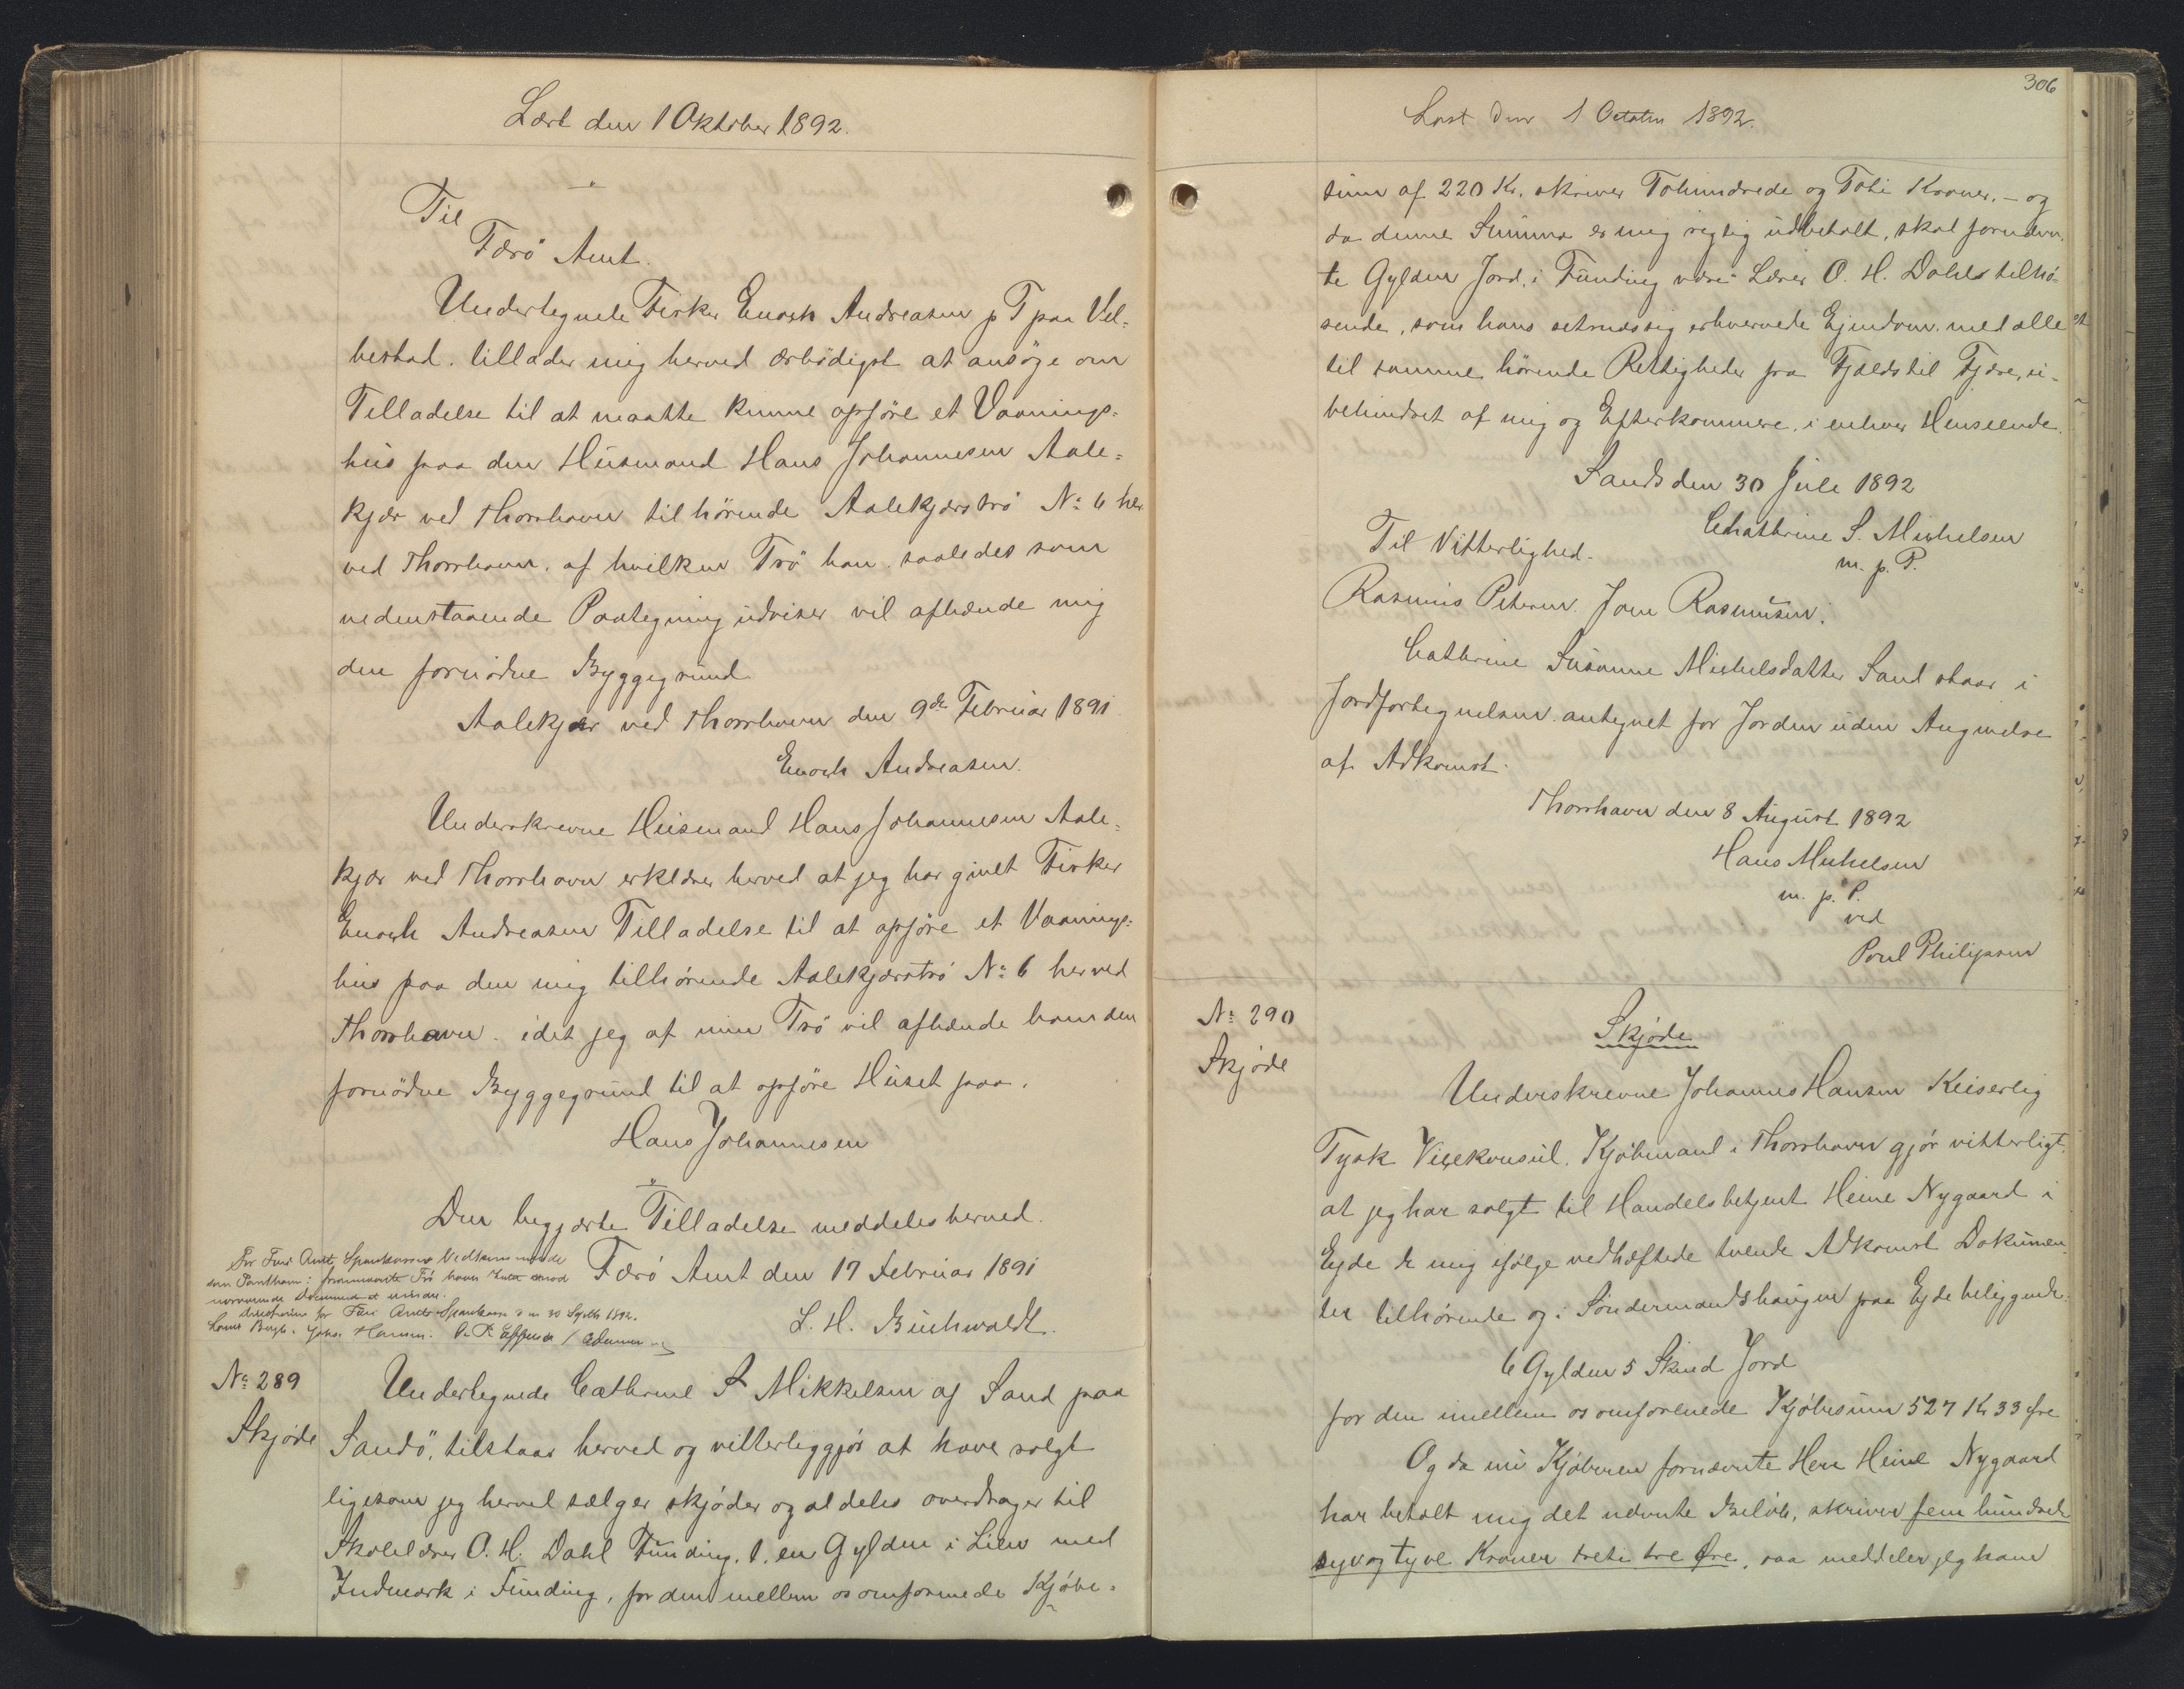 Læst den 1 Oktober 1892.
Til
Færö Amt.
Undertegnede Fisker Enoch Andreasen p T paa Vel-
bestad. tillader mig herved ærbödigst at ansöge om
Tilladelse til at maatte kunne opföre et Vaanings-
hus paa den Husmand Hans Johannesen Aale-
kjær ved Thorshavn tilhörende Aalekjærströ No 6 her
ved Thorshavn. af hvilken Trö han saaledes som
nedenstaaende Paategning udviser vil afhænde mig
den fornödne Byggegrund
Aalekjær ved Thorshavn den 9de Februar 1891
Enoch Andreasen.
Underskrevne Husmand Hans Johannesen Aale-
kjær ved Thorshavn erklærer herved at jeg har givet Fisker
Enoch Andreasen Tilladelse til at opföre et Vaanings-
hus paa den mig tilhörende Aalekjærströ No 6 her ved
Thorshavn. idet jeg af min Trö vil afhænde ham den
fornödne Byggegrund til at opföre Huset paa.
Hans Johannesen
Den begjærte Tilladelse meddeles herved.
Færö Amt den 17 Februar 1891
L. H. Buchwaldt.
For Færö Amts Sparekasses Vedkommende
som Panthaver i fornævnte Trö haves Intet imod
nærværende Dokument at erindre.
Direktionen for Færö Amts Sparekasse d. 30 Septb 1892.
Louis Bergh. Johs Hansen.
No 289
Skjøde
Undertegnede Cathrine S Mikkelsen af Sand paa
Sandö, tilstaar herved og vitterliggjör at have solgt
ligesom jeg herved sælger skjøder og aldeles overdrager til
Skolelærer O. H. Dahl Funding, 1. en Gylden i Lien med
Indmark i Funding, for den mellem os omforenede Kjøbe-
306
Læst den 1 October 1892.
sum af 220 Kr. skriver Tohundrede og Tolv Kroner. - og
da denne Summa er mig rigtig udbetalt, skal fornævn-
te Gylden Jord, i Funding være Lærer O. H. Dahls tilhø-
rende, som hans retmæssig erhvervede Ejendom. med alle
til samme hörende Rettigheder fra Fjelds til Fjære, u-
behindret af mig og Efterkommere, i enhver Henseende.
Sands den 30 Juli 1892
Chathrine S. Michelsen
m. p. P.
Til Vitterlighed.
Rasmus Petersen. Joen Rasmusen.
Cathrine Susanne Michelsdatter Sand staar i
Jordfortegnelsen antegnet for Jorden uden Angivelse
af Adkomst.
Thorshavn den 8 August 1892
Hans Michelsen
m. p. P.
ved
Poul Philipsen
No 290
Skjøde
Skjøde
Underskrevne Johannes Hansen Keiserlig
Tysk Vicekonsul. Kjøbmand i Thorshavn gjör vitterligt.
at jeg har solgt til Handelsbetjent Heine Nygaard i
Ejde de mig ifølge vedhæftede tvende Adkomst Dokumen-
ter tilhörende og i Søndermandshaugen paa Ejde beliggende
6 Gylden 5 Skind Jord
for den imellem os omforenede Kjøbesum 527 Kr 33 Øre
Og da nu Kjøberen fornævnte Herr Heine Nygaard
har betalt mig det nævnte Beløb, skriver fem hundrede
syv og tyve Kroner treti tre Øre, saa meddeler jeg ham